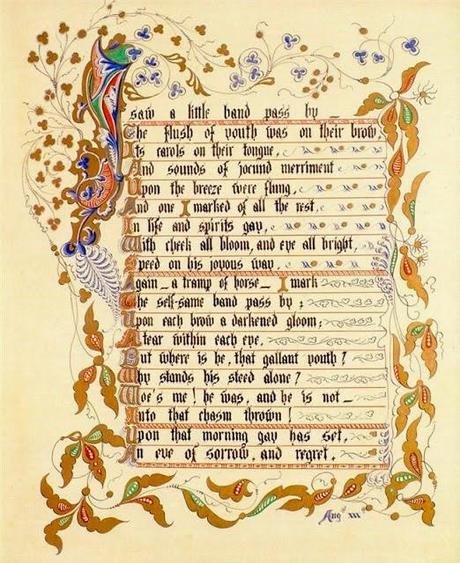 I saw a little band pass by
The flush of youth was on their brow,
Its carols on their tongue,
And sounds of jocund merriment
Upon the breeze were flung,
And one I marked of all the rest,
In life and spirits gay,
With cheek all bloom, and eye all bright,
Speed on his joyous way.
Again _ a tramp of horse _ I mark
The self-same band pass by;
Upon each brow a darkened gloom;
A tear within each eye.
But where is he, that gallant youth?
Why stands his steed alone?
Woe's me! he was, and he is not _
Into that chasm thrown!
Upon that morning gay has set,
An eve of sorrow, and regret.
Aug xxx